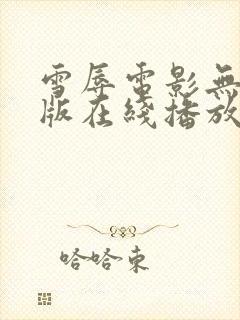 雪辱電影無
版在綫播放
哈哈東